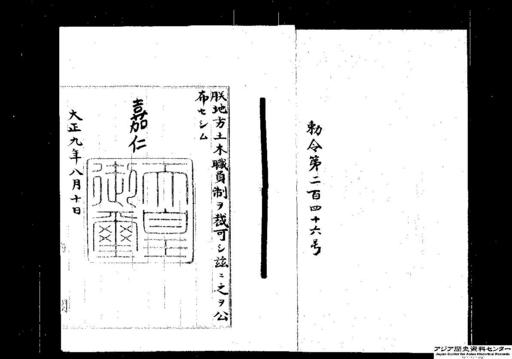 勅令第二百四十六号
朕地方土木職員制ヲ裁可シ茲ニ之ヲ公
布セシム
嘉仁
天皇
御璽
大正九年八月十日
アジア歴史資料センター
Japan Center for Asian Historical Records